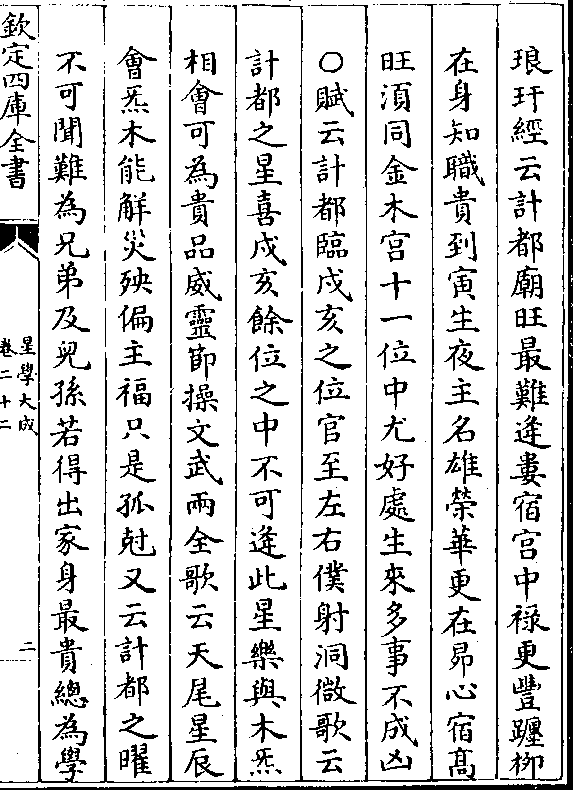 琅玕經云計都廟旺最難逢婁宿宫中祿更豐躔柳
在身知職貴到寅生夜主名雄榮華更在昴心宿髙
旺湏同金木宫十一位中尤好處生來多事不成凶
○賦云計都臨戌亥之位官至左右僕射洞微歌云
計都之星喜戌亥餘位之中不可逢此星樂與木炁
相會可為貴品威靈節操文武兩全歌云天尾星辰
會炁木能解災殃偏主福只是孤尅又云計都之曜
不可聞難為兄弟及兒孫若得出家身最貴總為學
欽定四庫全書
星學大成
卷二十二
二